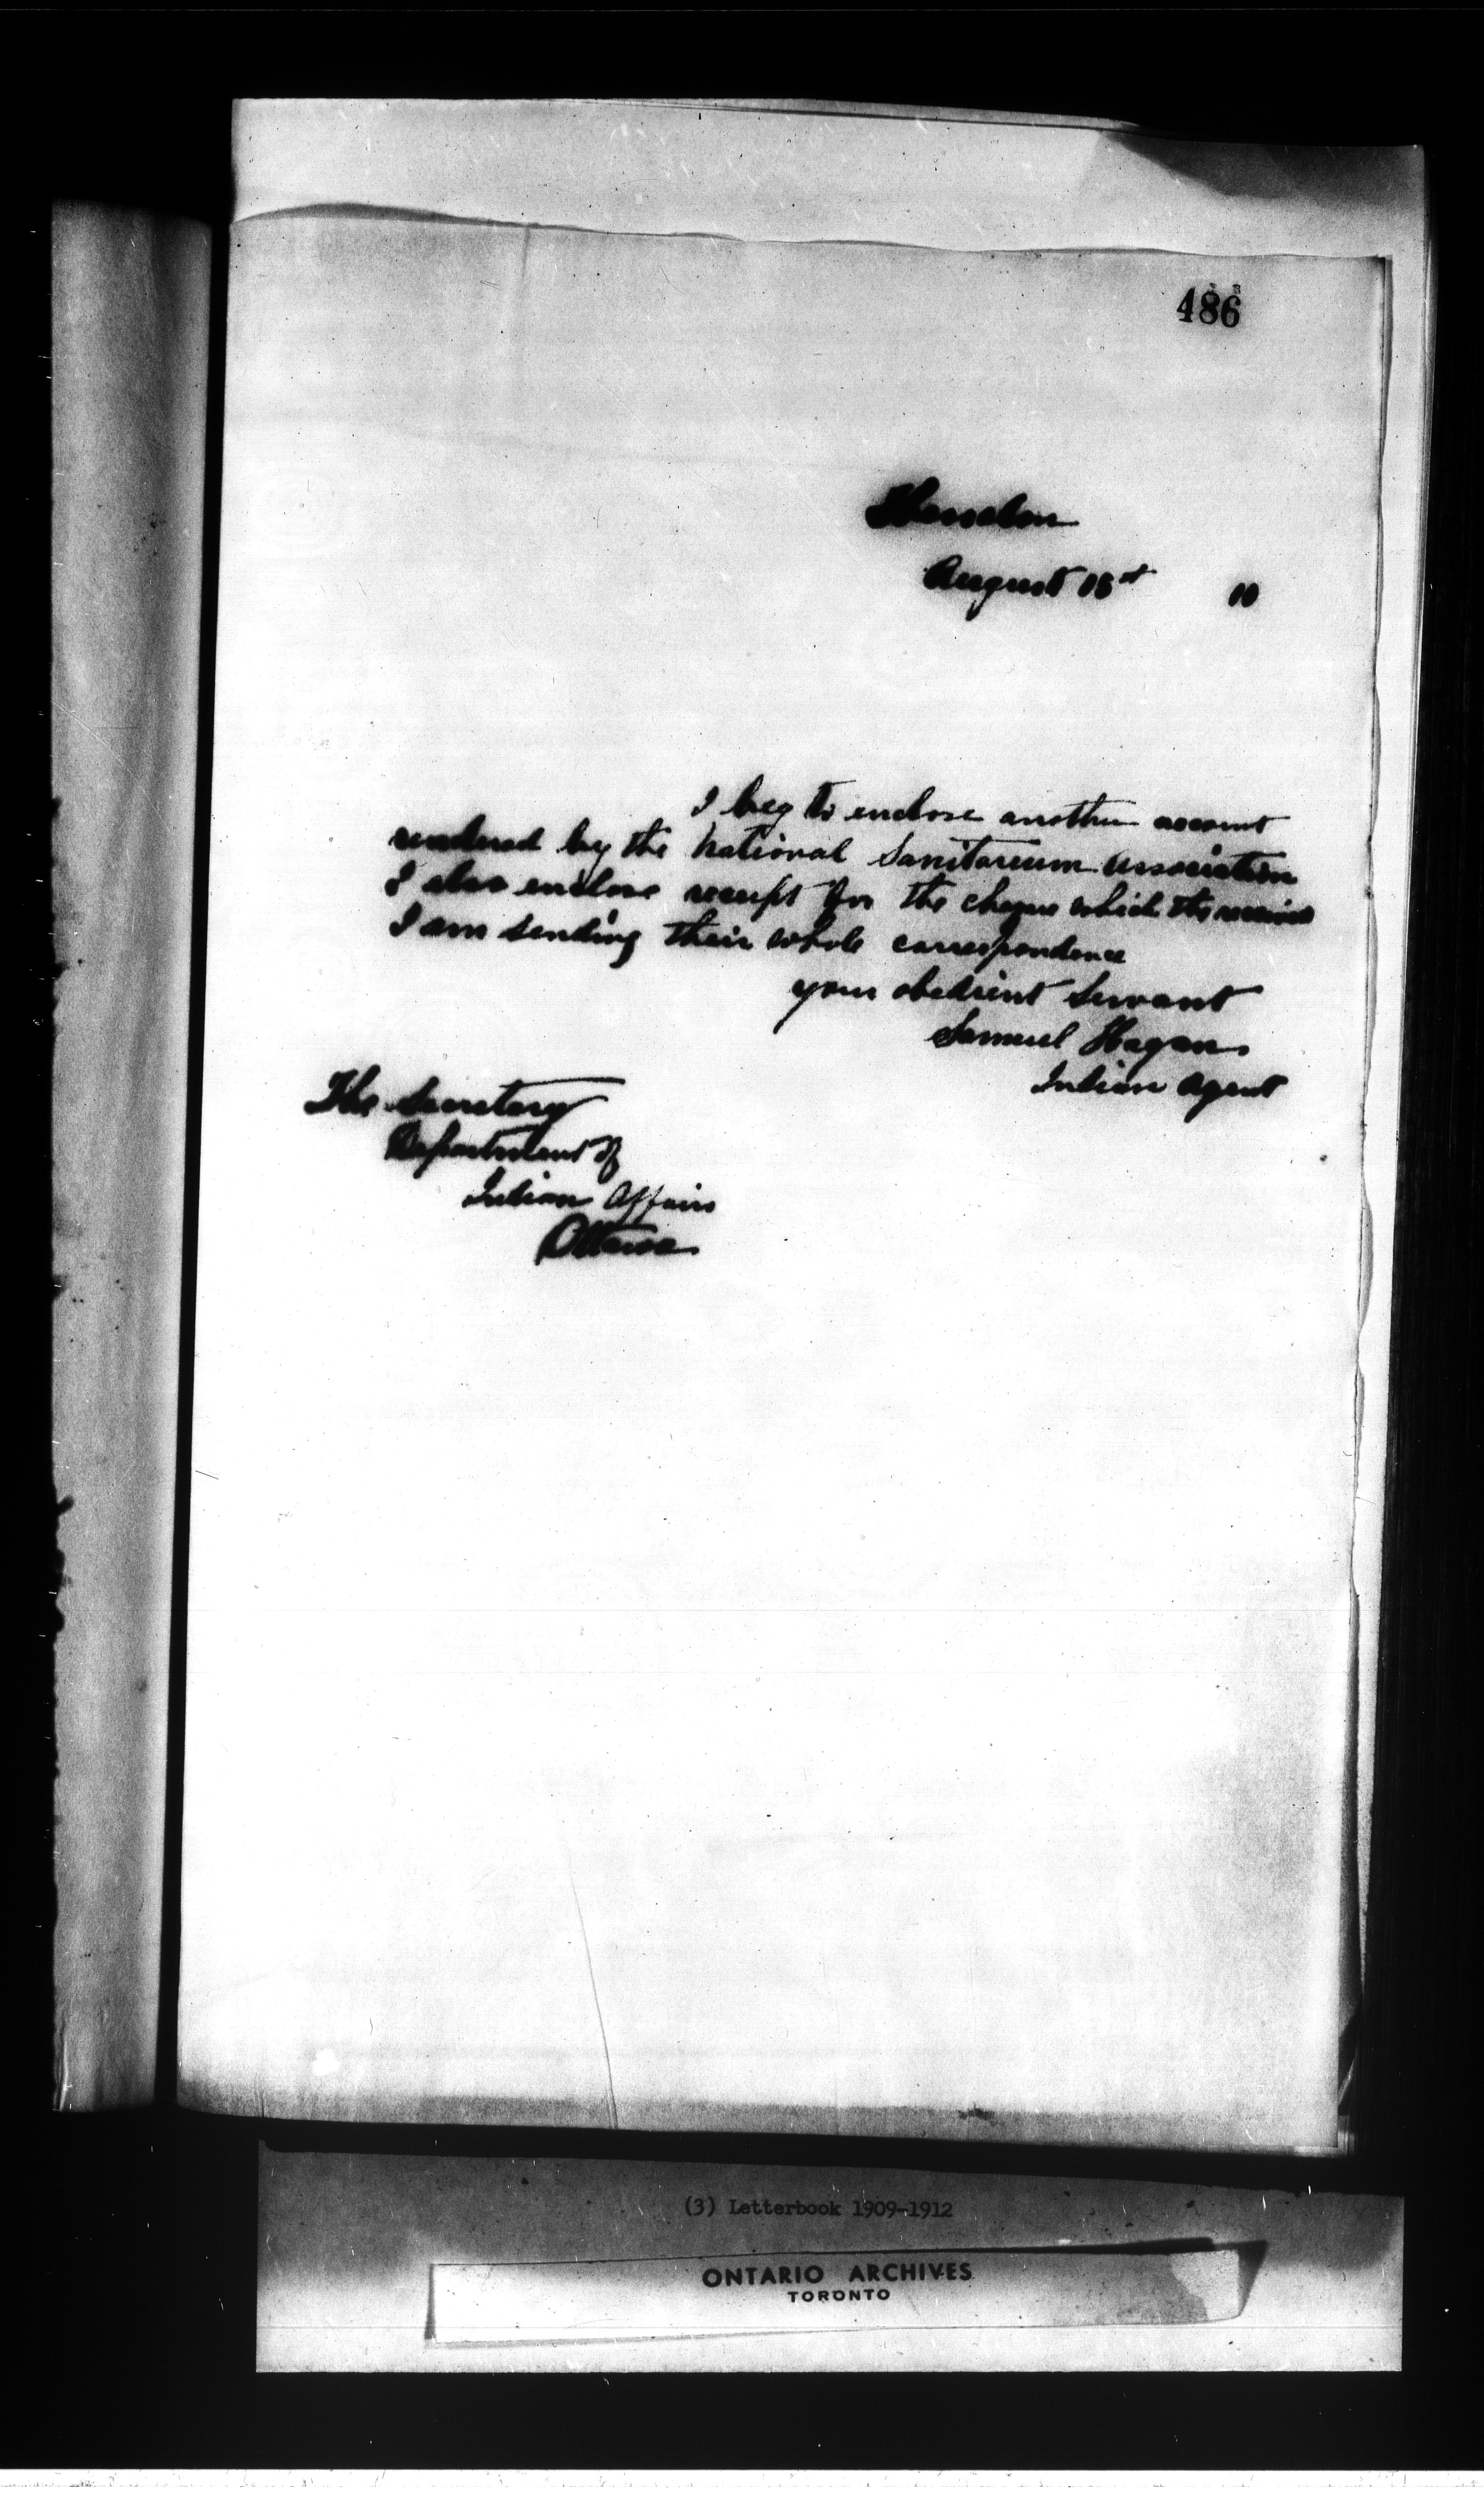 486
Thessalon
August 15st 10
I beg to enclose another account
rendered by the National Sanitarium Association
I also enclose receipt for the cheque which they received
I am sending their whole correspondence
your obedient Servant
Samuel Hagan
Indian Agent
The Secretary
Department of
Indian Affairs
Ottawa
(3) Letterbook 1909-1912
ONTARIO ARCHIVES
TORONTO